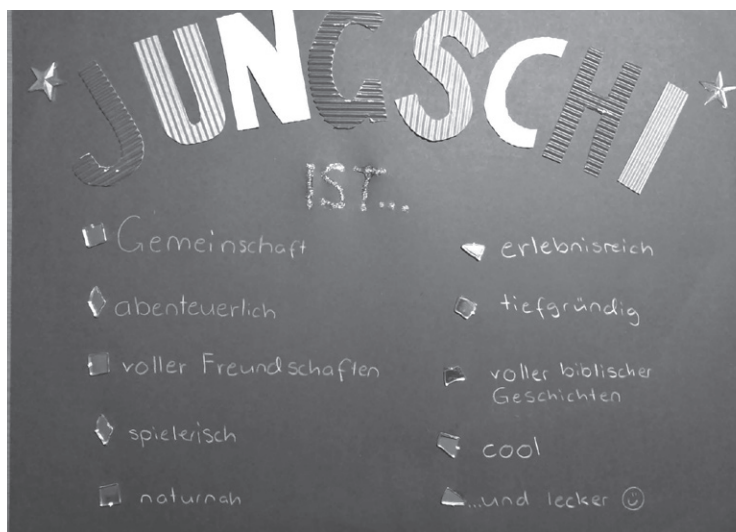 JUNGSCHI
IST...
Gemeinschaft
abenteuerlich
voller Freundschaften
spielerisch
naturnah
erlebnisreich
tiefgründig
voller biblischer
Geschichten
cool
...und lecker ☺